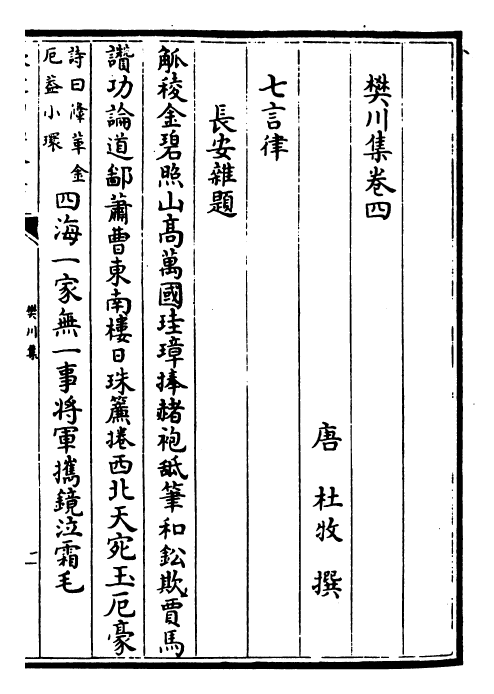 樊川集卷四
唐 杜牧 撰
七言律
長安雜題
觚稜金碧照山高萬國珪璋捧赭袍䑛筆和鉛欺賈馬
讚功論道鄙蕭曹東南樓日珠簾捲西北天宛玉厄豪
詩曰鞗革金
厄葢小環
四海一家無一事將軍攜鏡泣霜毛
樊川集
二